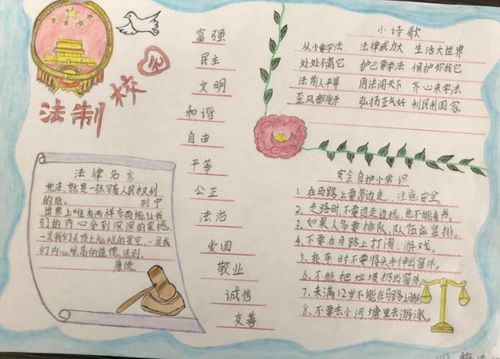 法制
校
富强
民主
文明
和谐
自由
平等
公正
法治
爱国
敬业
诚信
友善
小诗歌
从小要学法 法律威力大 生活大世界
处处不离它 护己要学法 保护你我它
法前人平等 用法闯天下 齐心来学法
利民利国家
法律名言
宪法就是一张写着人民权利
的纸。 列宁
世界上唯有两样东西能让我
们的内心受到深深的震撼。
一是我们头顶上灿烂的星空,一是我
们内心崇高的道德法则。
康德
安全自护小常识
1、在马路上要靠边走,注意安全
2、走路时不要边走边玩,也不能看书。
3、如果人多要排队,队伍应竖排。
4、不要在马路上打闹、游戏。
5、乘车时不要将头、手伸出窗外。
6、不能把垃圾扔出窗外。
7、未满12岁不能在马路上骑
8、不要去小河塘里去游泳。